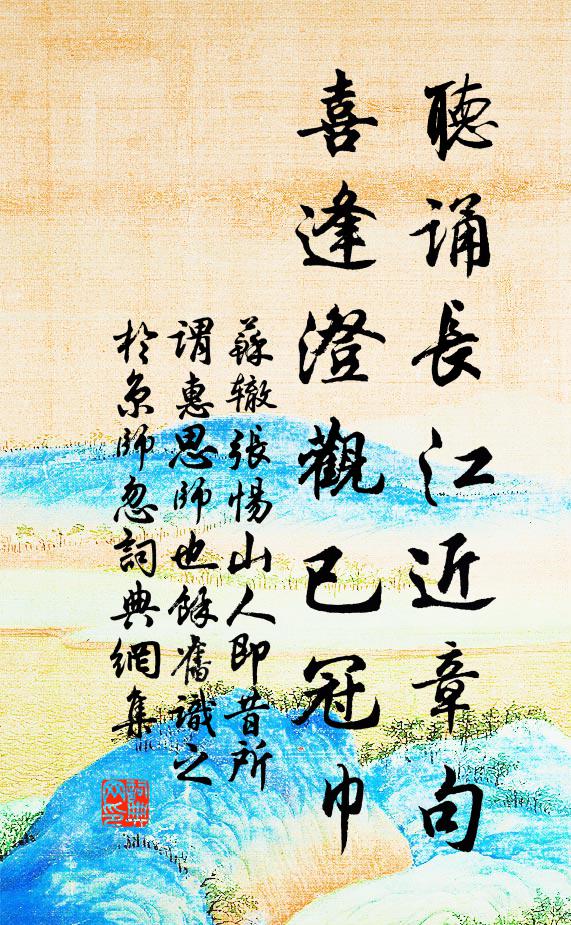 聽誦長江近章句
喜逢澄觀已冠巾
蘇轍張惕山人即昔所
謂惠思師也餘舊識之
於京師忽詞典網集